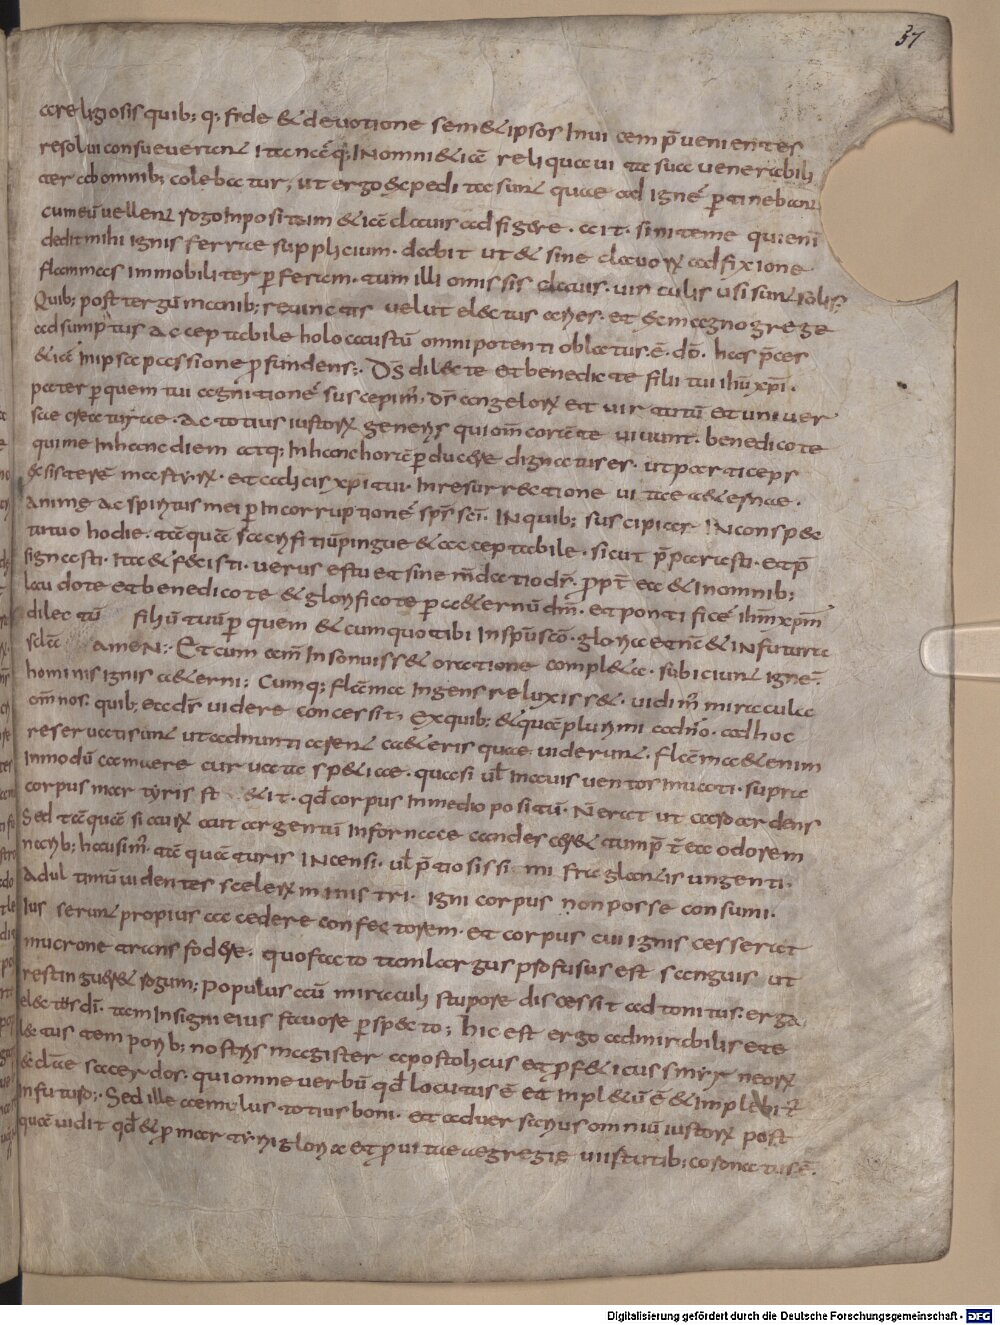 37
a religiosis quib; q; fide & devotione semet ipsos Inui cem p̄venientes
resolui consueverant Ita nāq; INomni & iā reliqua vita sua venerabili
ter ab omnib; colebatur, ut ergo expedita sunt quae ad ignē ꝑtinebant
cum eū vellent rogo Inpositum & iā clavis adfigere. ait. sinite me qui enī
dedit mihi ignis ferrae supplicium. dabit ut & sine clavorꝝ adfixione
flammas immobiliter ꝑferam. tum illi omissis clavis. vinculis usi sunt solis;
Quib; post tergū manib; revinctis velut electus aries. et &magno grege
adsumptus Acceptabile holocaustū omnipotenti oblatus. ē. dō. has p̄ces
& iā Inipsa passione ꝑfundens:. Ds̄ dilecte et benedicte filii tui ihū xp̄i.
pater ꝑ quem tui agnitionē suscepim̄, ds̄ angelorꝝ et virtutū et univer
sae creaturae. Ac totius iustorꝝ generis qui om̄ corā te vivunt. benedico te
qui me Inhanc diem atq; Inhanc horā ꝑducere dignatus es. ut particeps
existerē martyrꝝ. et calicis xp̄i tui. Inresurrectione vitae aeternae.
Anime Ac spiritus mei ꝑ Incorruptionē sp̄s sc̄i. INquib; suscipiar INconspec
tu tuo hodie. tā quā sacrifitiū pingue & acceptabile. sicut p̄parasti. et p̄
signasti. Ita & fecisti. verus es tu et sine mendatio ds̄. ꝓpt̄ ea & Inomnib;
laudo te et benedico te & glorifico te ꝑ aeternū dm̄. et pontificē ihm̄ xp̄m
dilectū filiū tuū ꝑ quem & cum quo tibi Insp̄u sc̄o. gloria et nc̄ & INfutura
scl̄a AmeN:. Et cum am̄ Insonuisset & oratione completa. subiciunt ignē.
hominis ignis aeterni; Cumq; flāma Ingens reluxisset. vidim̄ miracula
om̄ nos. quib; ea ds̄ videre concessit, Exquib; & quā plurimi adn̄o. adhoc
reservati sunt ut adnuntiarent caeteris quae viderunt. flāma etenim
Inmodū camere curvata speciae. quasi ul̄ Inavis ventos Inuati. supra
corpus martyris stetit. qd̄ corpus Inmedio positū. Nerat ut caro ardens
Sed tā quā si aurꝝ aut argentū Infornace candescēret tum p̄t̄ ea odorem
narib; hausim̄. tā quā turis INcensi. ul̄ p̄tiosissimi fraglantis ungenti.
Ad ultimū videntes scelerꝝ ministri. igni corpus non posse consumi.
Iusserunt propius accedere confectorem. et corpus cui ignis cesserat
mucrone transfodere. quo facto tam largus profusus est sanguis ut
restingueret rogum; Populus cū miraculi stupore discessit adtonitus. erga
electos dī. tam Insigni eius favore ꝑspecto; hic est ergo admirabilis et e
lectus temporib; nostris magister apostolicus et ꝓfeticus smyrneorꝝ
ecl̄ae sacerdos. qui omne verbū qd̄ locutus ē et Inpletū ē & Implebitꝛ
Infuturo;. Sed ille aemulus totius boni. et adversarius omniū iustorꝝ post
quā vidit qd̄ & ꝑ martyrii gloria et ꝓ vitae aegregie virtutib; coronatus ē.
Digitalisierung gefördert durch die Deutsche Forschungsgemeinschaft - DFG